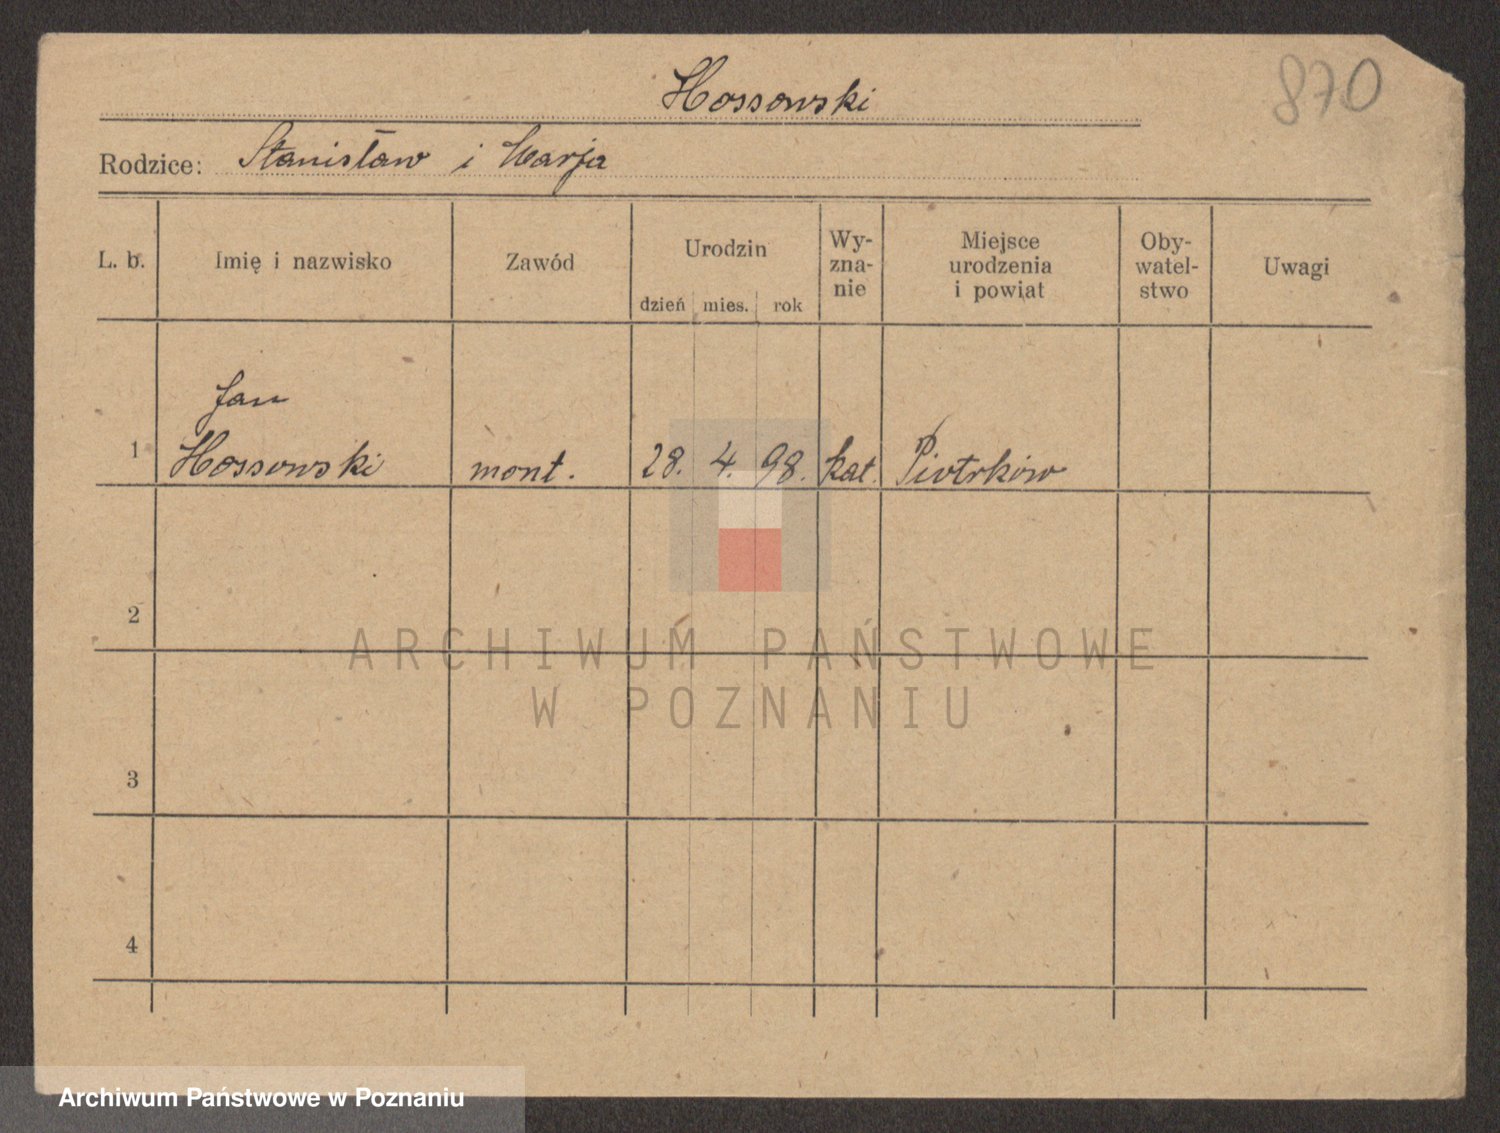 870
Hossowski
Rodzice: Stanisław i Marja
L. b.
Imię i nazwisko
Zawód
Urodzin
dzień mies. rok
Wy-
zna-
nie
Miejsce
urodzenia
i powiat
Oby-
watel-
stwo
Uwagi
Jan
1 Hossowski mont. 28. 4. 98. kat. Piotrków
2
3
4
ARCHIWUM PAŃSTWOWE
W POZNANIU
Archiwum Państwowe w Poznaniu